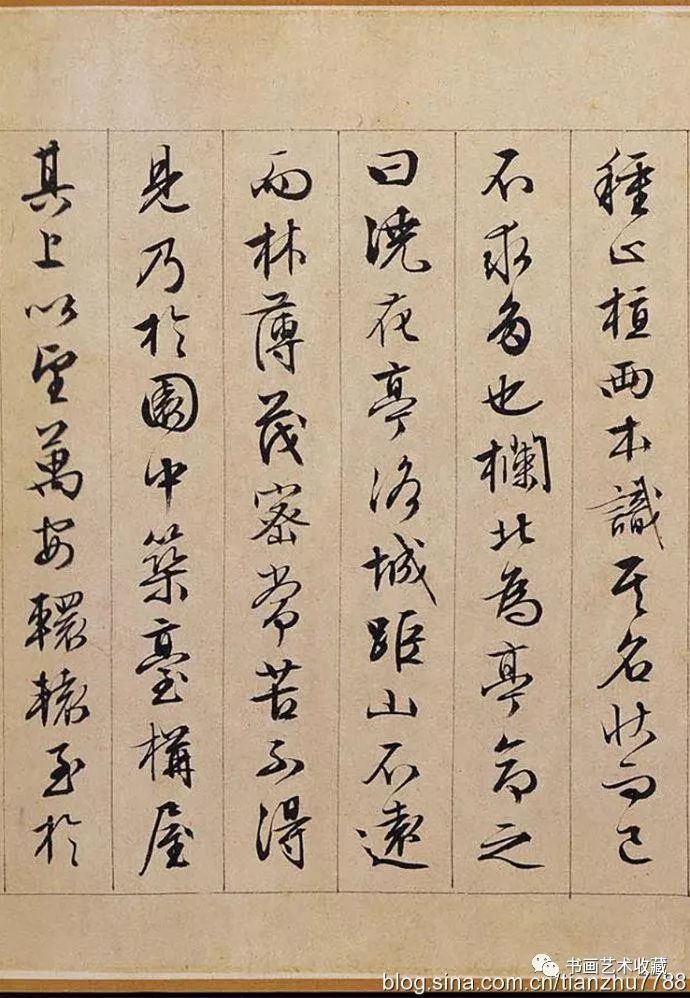 種止植兩本識其名狀而已
不求多也欄北為亭命之
曰澆花亭洛城距山不遠
而林薄茂密常苦不得
見乃於園中築臺構屋
其上以望萬安轘轅至於
书画艺术收藏
blog.sina.com.cn/tianzhu7788